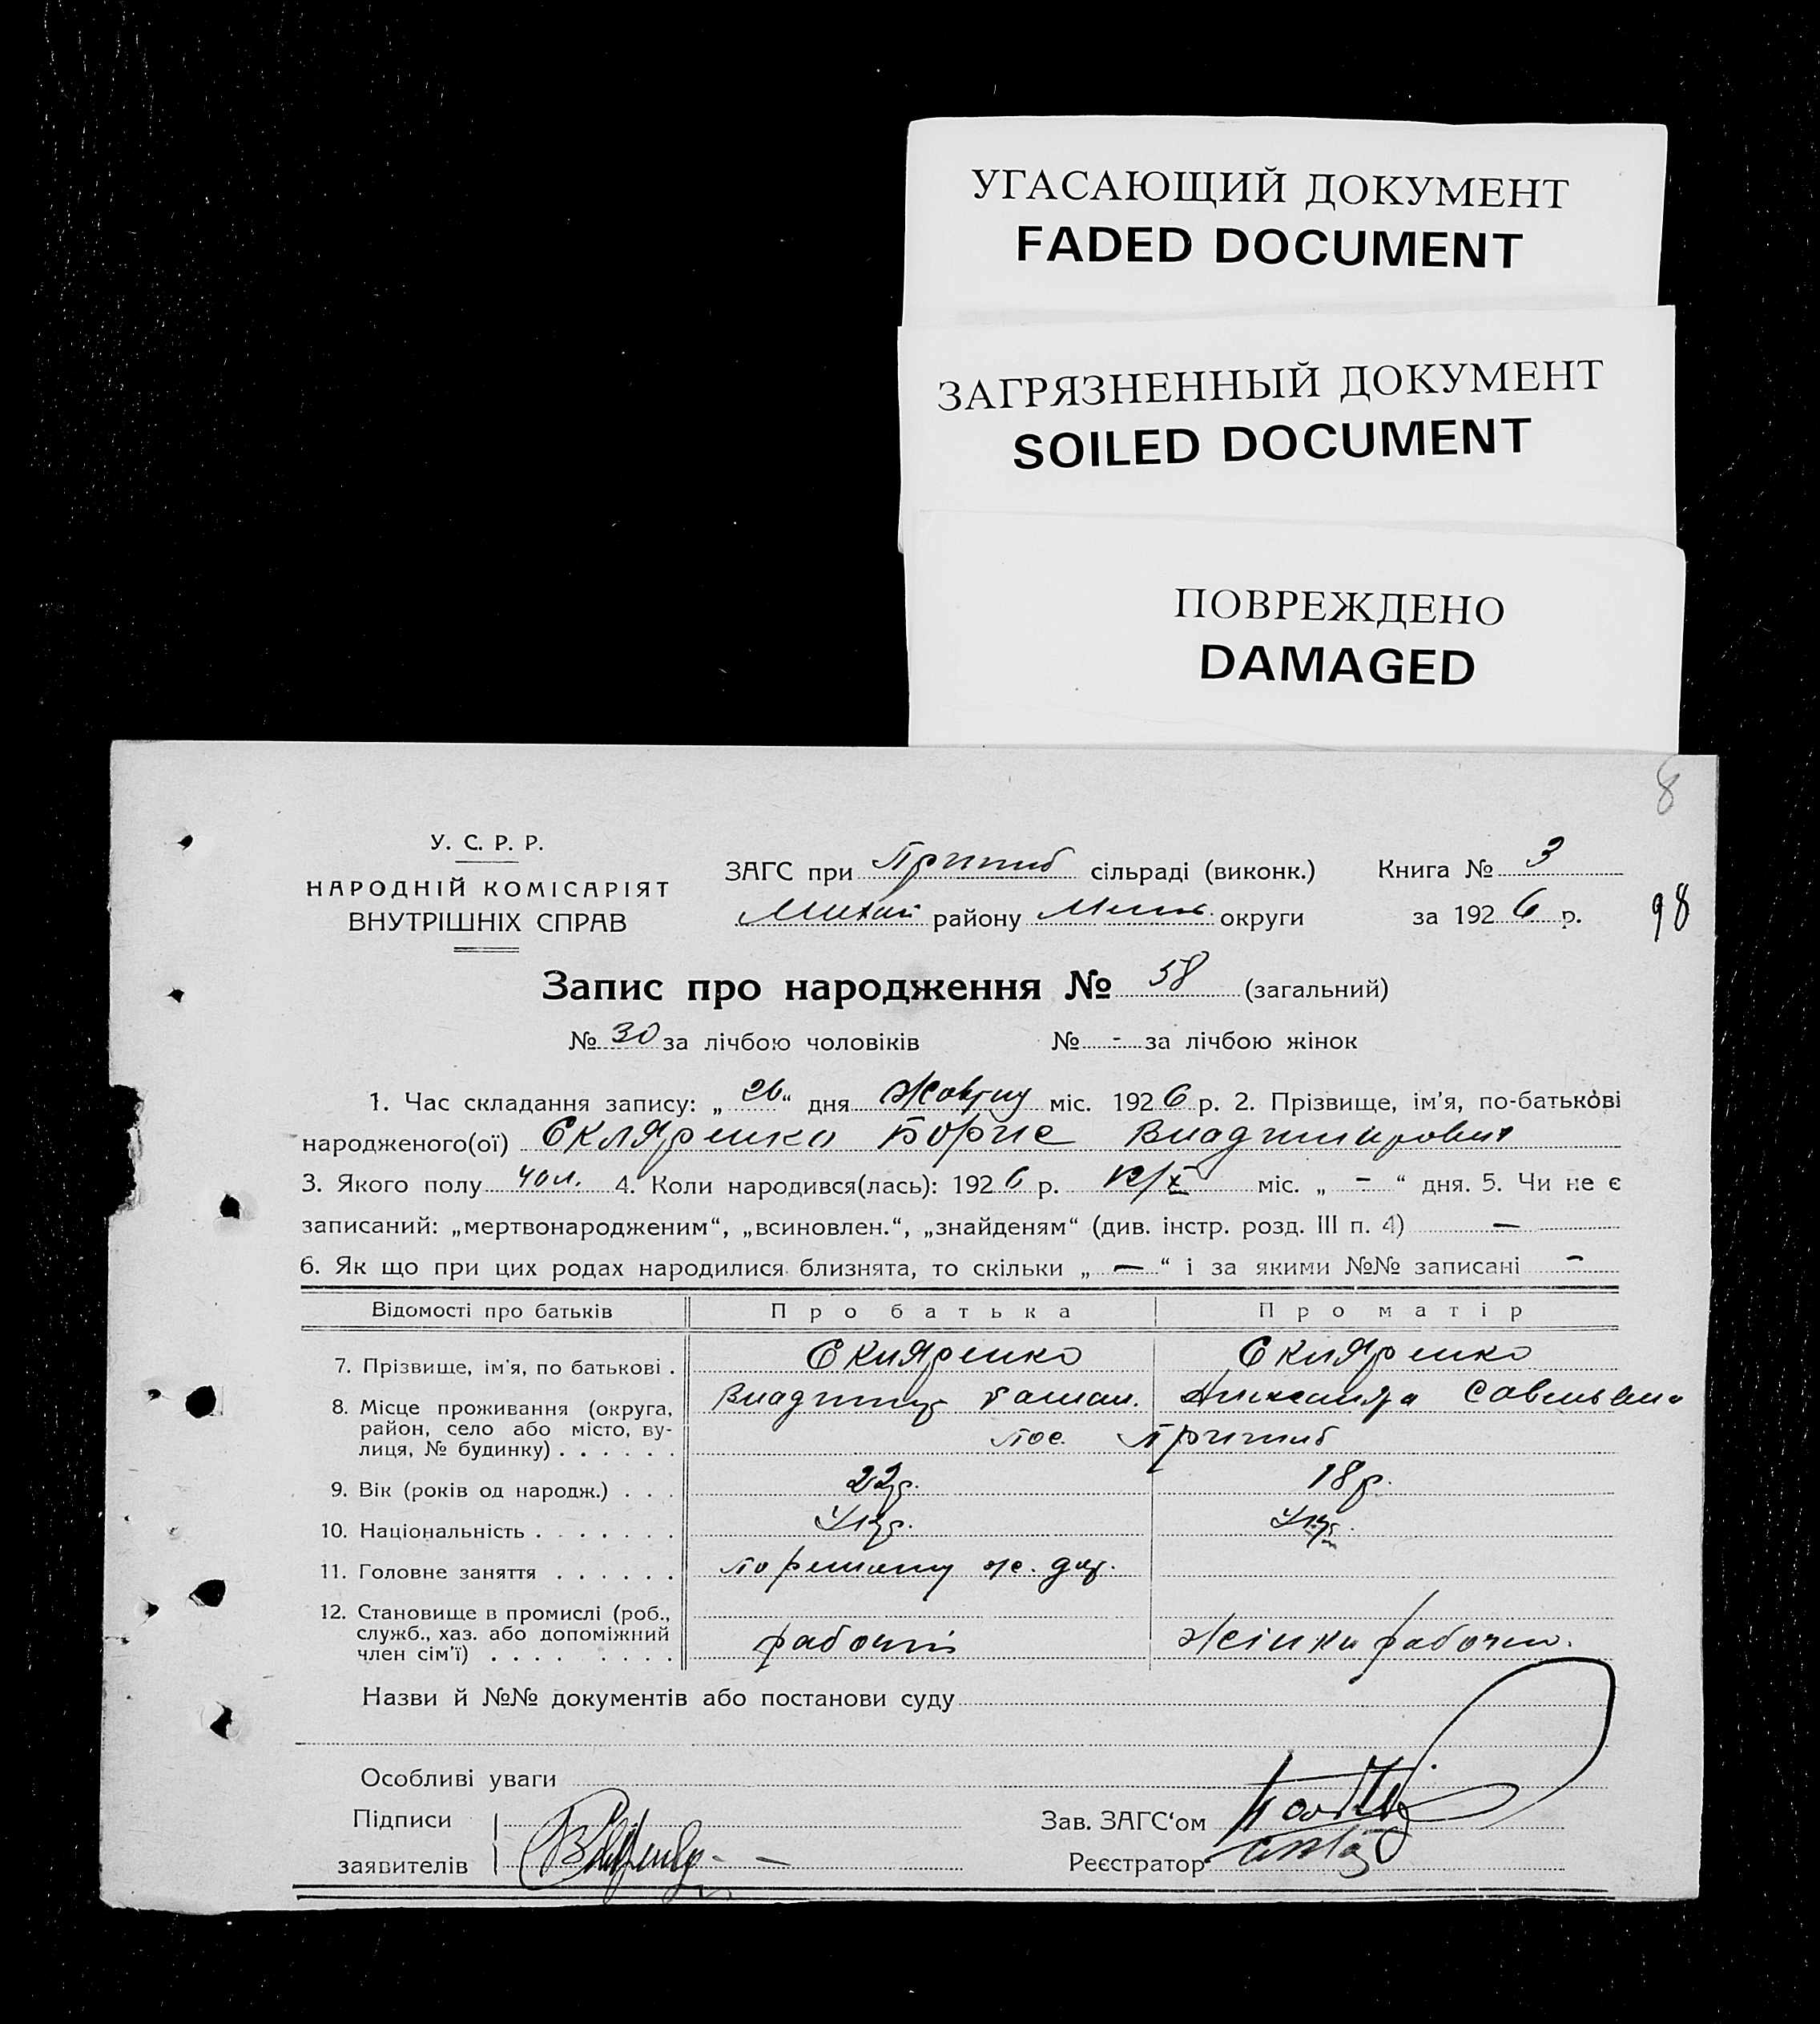 УГАСАЮЩИЙ ДОКУМЕНТ
FADED DOCUMENT
ЗАГРЯЗНЕННЫЙ ДОКУМЕНТ
SOILED DOCUMENT
ПОВРЕЖДЕНО
DAMAGED
8
У. С. Р. Р.
НАРОДНІЙ КОМІСАРІЯТ
ВНУТРІШНІХ СПРАВ
ЗАГС при Пришиб сільраді (виконк.) Книга № 3
Михай району Мели округи за 1926 р.
98
Запис про народження № 58 (загальний)
№ 30 за лічбою чоловіків № - за лічбою жінок
1. Час складання запису: „26“ дня Жовтня міс. 1926 р. 2. Прізвище, ім'я, по-батькові
народженого(ої) Скляренко Борис Владимирович
3. Якого полу чол. 4. Коли народився(лась): 1926 р. міс. „ - “ дня. 5. Чи не є
записаний: „мертвонародженим“, „всиновлен.“, „знайденям“ (див. інстр. розд. III п. 4) —
6. Як що при цих родах народилися близнята, то скільки „ — “ і за якими №№ записані -
Відомості про батьків Про батька Про матір
7. Прізвище, ім'я, по батькові . Скляренко Скляренко
8. Місце проживання (округа, Владимир Александра Савельевна
район, село або місто, ву-
лиця, № будинку) . . . . . . пос. Пришиб
9. Вік (років од народж.) . . . 22р. 18р.
10. Національність . . . . . . . Укр. Укр.
11. Головне заняття . . . . . . по ремонту ж. дор.
12. Становище в промислі (роб.,
служб., хаз. або допоміжний
член сім'ї) . . . . . . . . рабочий Жінка рабоч.
Назви й №№ документів або постанови суду
Особливі уваги
Підписи
заявителів
Зав. ЗАГС'ом
Реєстратор